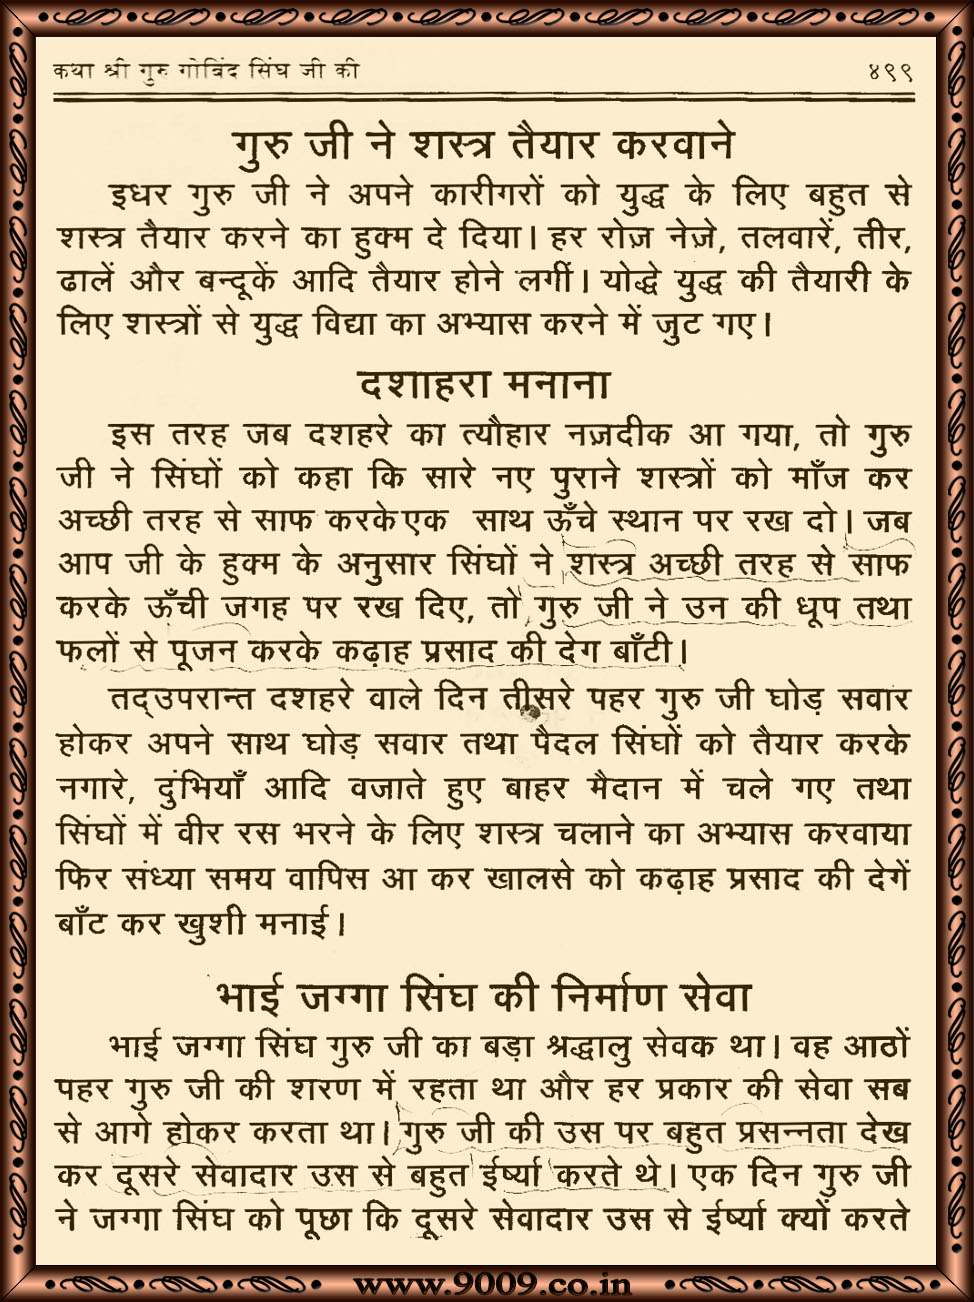 कथा श्री गुरु गोबिंद सिंघ जी की ४९९
गुरु जी ने शस्त्र तैयार करवाने
इधर गुरु जी ने अपने कारीगरों को युद्ध के लिए बहुत से
शस्त्र तैयार करने का हुक्म दे दिया। हर रोज़ नेज़े, तलवारें, तीर,
ढालें और बन्दूकें आदि तैयार होने लगीं। योद्धे युद्ध की तैयारी के
लिए शस्त्रों से युद्ध विद्या का अभ्यास करने में जुट गए।
दशाहरा मनाना
इस तरह जब दशहरे का त्यौहार नज़दीक आ गया, तो गुरु
जी ने सिंघों को कहा कि सारे नए पुराने शस्त्रों को माँज कर
अच्छी तरह से साफ करके एक साथ ऊँचे स्थान पर रख दो। जब
आप जी के हुक्म के अनुसार सिंघों ने शस्त्र अच्छी तरह से साफ
करके ऊँची जगह पर रख दिए, तो गुरु जी ने उन की धूप तथा
फलों से पूजन करके कढ़ाह प्रसाद की देग बाँटी।
तद्उपरान्त दशहरे वाले दिन तीसरे पहर गुरु जी घोड़ सवार
होकर अपने साथ घोड़ सवार तथा पैदल सिंघों को तैयार करके
नगारे, दुंभियाँ आदि वजाते हुए बाहर मैदान में चले गए तथा
सिंघों में वीर रस भरने के लिए शस्त्र चलाने का अभ्यास करवाया
फिर संध्या समय वापिस आ कर खालसे को कढ़ाह प्रसाद की देगें
बाँट कर खुशी मनाई।
भाई जग्गा सिंघ की निर्माण सेवा
भाई जग्गा सिंघ गुरु जी का बड़ा श्रद्धालु सेवक था। वह आठों
पहर गुरु जी की शरण में रहता था और हर प्रकार की सेवा सब
से आगे होकर करता था। गुरु जी की उस पर बहुत प्रसन्नता देख
कर दूसरे सेवादार उस से बहुत ईर्ष्या करते थे। एक दिन गुरु जी
ने जग्गा सिंघ को पूछा कि दूसरे सेवादार उस से ईर्ष्या क्यों करते
www.9009.co.in